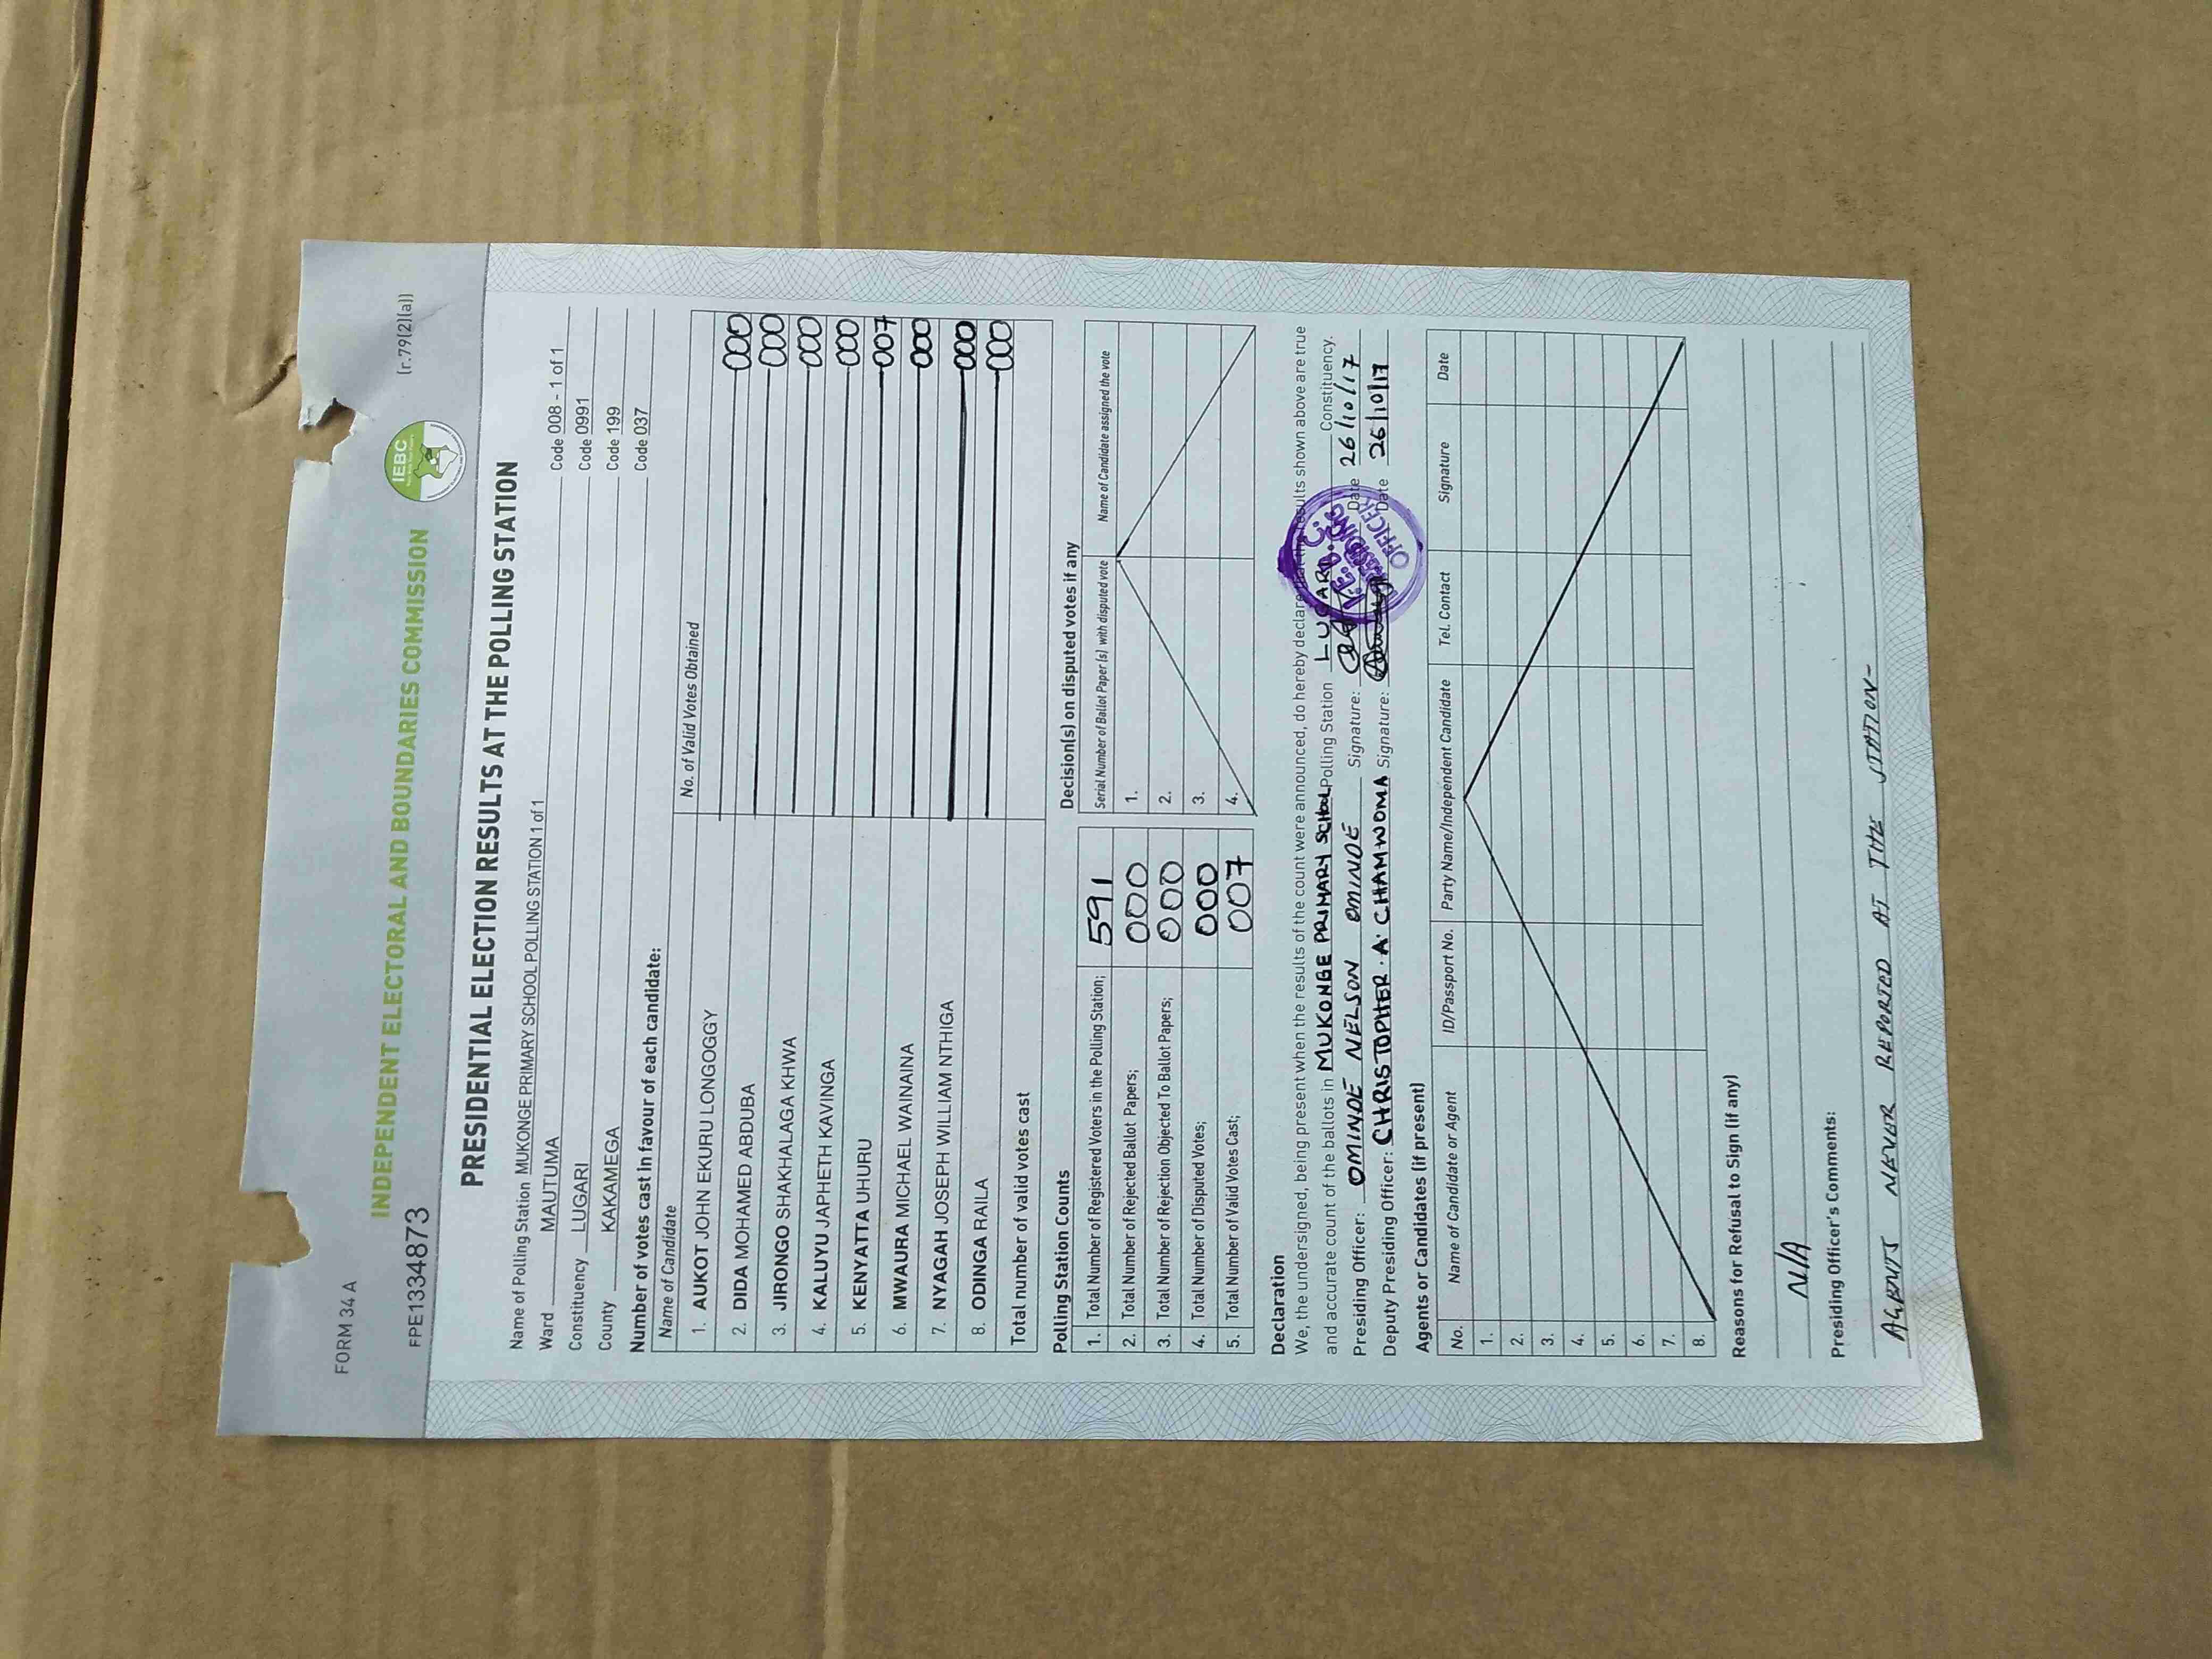 FORM 34 A
(r.79(2)(a))
INDEPENDENT ELECTORAL AND BOUNDARIES COMMISSION
IEBC
FPE1334873
PRESIDENTIAL ELECTION RESULTS AT THE POLLING STATION
Name of Polling Station MUKONGE PRIMARY SCHOOL POLLING STATION 1 of 1 Code 008 - 1 of 1
Ward MAUTUMA Code 0991
Constituency LUGARI Code 199
County KAKAMEGA Code 037
Number of votes cast in favour of each candidate:
Name of Candidate No. of Valid Votes Obtained
1. AUKOT JOHN EKURU LONGOGGY 000
2. DIDA MOHAMED ABDUBA 000
3. JIRONGO SHAKHALAGA KHWA 000
4. KALUYU JAPHETH KAVINGA 000
5. KENYATTA UHURU 007
6. MWAURA MICHAEL WAINAINA 000
7. NYAGAH JOSEPH WILLIAM NTHIGA 000
8. ODINGA RAILA 000
Total number of valid votes cast
Polling Station Counts
1. Total Number of Registered Voters in the Polling Station; 591
2. Total Number of Rejected Ballot Papers; 000
3. Total Number of Rejection Objected To Ballot Papers; 000
4. Total Number of Disputed Votes; 000
5. Total Number of Valid Votes Cast; 007
Decision(s) on disputed votes if any
Serial Number of Ballot Paper (s) with disputed vote Name of Candidate assigned the vote
1.
2.
3.
4.
Declaration
We, the undersigned, being present when the results of the count were announced, do hereby declare that the results shown above are true
and accurate count of the ballots in MUKONGE PRIMARY SCHOOL Polling Station LUGARI Constituency.
Presiding Officer: OMINDE NELSON OMINDE Signature: Date 26/10/17
Deputy Presiding Officer: CHRISTOPHER . A. CHAMWOMA Signature: Date 26/10/17
I.E.B.C.
PRESIDING
OFFICER
Agents or Candidates (if present)
No. Name of Candidate or Agent ID/Passport No. Party Name/Independent Candidate Tel. Contact Signature Date
1.
2.
3.
4.
5.
6.
7.
8.
Reasons for Refusal to Sign (if any)
N/A
Presiding Officer's Comments:
AGENTS NEVER REPORTED AT THE STATION-